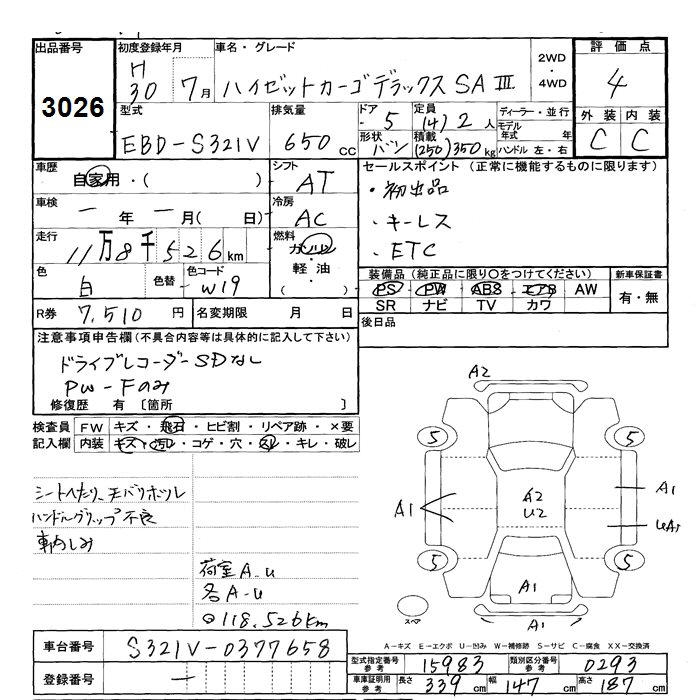 出品番号
3026
初度登録年月
H 30 7月
車名・グレード
ハイゼットカーゴデラックス SAⅢ
2WD
・
4WD
評価点
4
型式
EBD-S321V
排気量
650cc
ドア
・5
形状
バン
定員
(4)2人
積載
(250)350kg
ディーラー・並行
モデル
年式 年
ハンドル 左・右
外装 内装
C C
車歴
自家用・( )
シフト
AT
セールスポイント (正常に機能するものに限ります)
・初出品
・キーレス
・ETC
車検
一年 一月( 日)
冷房
AC
走行
11万8千526km
燃料
ガソリン
・
軽油
・
( )
色
白
色替
色コード
W19
装備品 (純正品に限り○をつけてください)
新車保証書
PS PW ABS エアB AW
SR ナビ TV カワ
有・無
R券 7,510円
名変期限 月 日
後日品
注意事項申告欄(不具合内容等は具体的に記入して下さい)
ドライブレコーダーSDなし
PW-Fのみ
修復歴 有 〔箇所 〕
検査員
記入欄
FW キズ・飛石・ヒビ割・リペア跡・×要
内装 キズ・汚レ・コゲ・穴・スレ・キレ・破レ
シートへたり、天バリホツレ
ハンドルグリップ不良
車内しみ
荷室A-U
各A-U
118.526km
A2
5 5
A1
A2
U2
A1
UA1
5 5
A1
スペア
A1
A-キズ E-エクボ U-凹み W-補修跡 S-サビ C-腐食 XX-交換済
車台番号 S321V-0377658
登録番号 一
型式指定番号
参考
15983
類別区分番号
参考
0293
車庫証明用
参考
長さ 339cm 幅 147cm 高さ 187cm